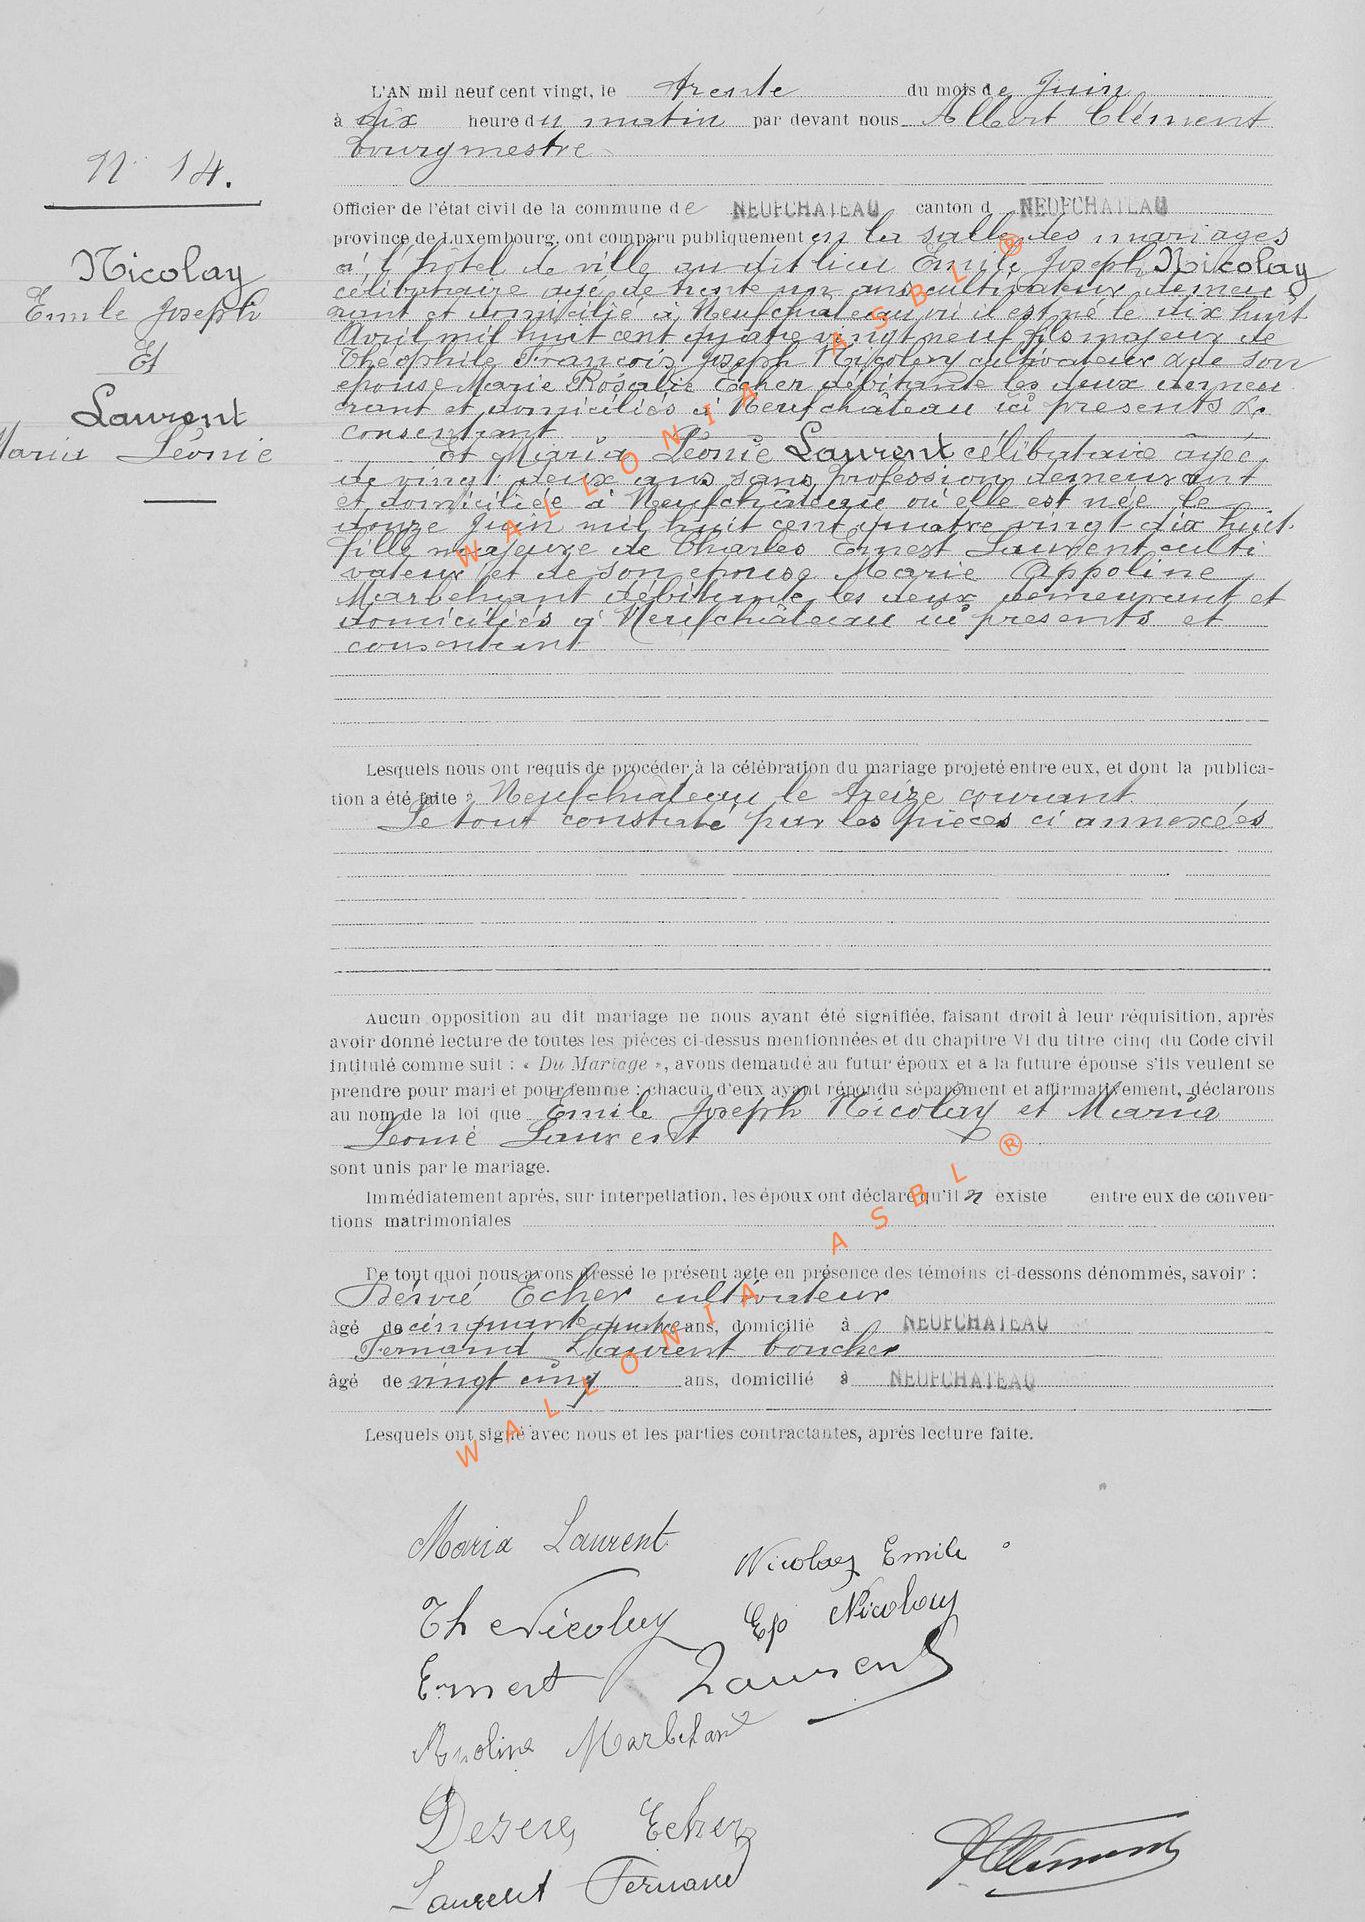 L'AN mil neuf cent vingt, le trente du mois de Juin
à dix heure du matin par devant nous Albert Clément
bourgmestre
N° 14.
Officier de l'état civil de la commune de NEUFCHATEAU canton d NEUFCHATEAU
province de Luxembourg, ont comparu publiquement en la salle des mariages
Nicolay
Emile Joseph
Et
Laurent
Maria Léonie
à l'hôtel de ville au dit lieu Emile Joseph Nicolay
célibataire agé de trente un ans cultivateur demeu
rant et domicilié à Neufchâteau où il est né le dix huit
Avril mil huit cent quatre vingt neuf fils majeur de
Théophile François Joseph Nicolay cultivateur & de son
epouse Marie Rosalie Echer débitante les deux demeu
rant et domiciliés à Neufchâteau ici presents &
consentant
Et Maria Léonie Laurent célibataire âgée
de vingt deux ans sans profession demeurant
et domiciliée à Neufchâteau où elle est née le
douze Juin mil huit cent quatre vingt dix huit
fille majeure de Charles Ernest Laurent culti
vateur et de son epouse Marie Appoline
Marbehant débitante les deux demeurant et
domiciliés à Neufchâteau ici presents et
consentant
Lesquels nous ont requis de procéder à la célébration du mariage projeté entre eux, et dont la publica-
tion a été faite à Neufchâteau le treize courant
Le tout constaté par les pièces ci annexées
Aucun opposition au dit mariage ne nous ayant été signifiée, faisant droit à leur réquisition, après
avoir donné lecture de toutes les pièces ci-dessus mentionnées et du chapitre VI du titre cinq du Code civil
intitulé comme suit : « Du Mariage », avons demandé au futur époux et a la future épouse s'ils veulent se
prendre pour mari et pour femme ; chacun d'eux ayant répondu séparément et affirmativement, déclarons
au nom de la loi que Emile Joseph Nicolay et Maria
Leonie Laurent
sont unis par le mariage.
Immédiatement après, sur interpellation, les époux ont déclaré qu'il n existe entre eux de conven-
tions matrimoniales
De tout quoi nous avons dressé le présent acte en présence des témoins ci-dessons dénommés, savoir :
Désiré Echer cultivateur
âgé de cinquante quatre ans, domicilié à NEUFCHATEAU
Fernand Laurent boucher
âgé de vingt cinq ans, domicilié à NEUFCHATEAU
Lesquels ont signé avec nous et les parties contractantes, après lecture faite.
Maria Laurent
Nicolay Emile
Th Nicolay
Ep Nicolay
Ernest Laurent
Apoline Marbehant
Desire Echer
Laurent Fernand
AClément
WALLONIA ASBL ®
WALLONIA ASBL ®